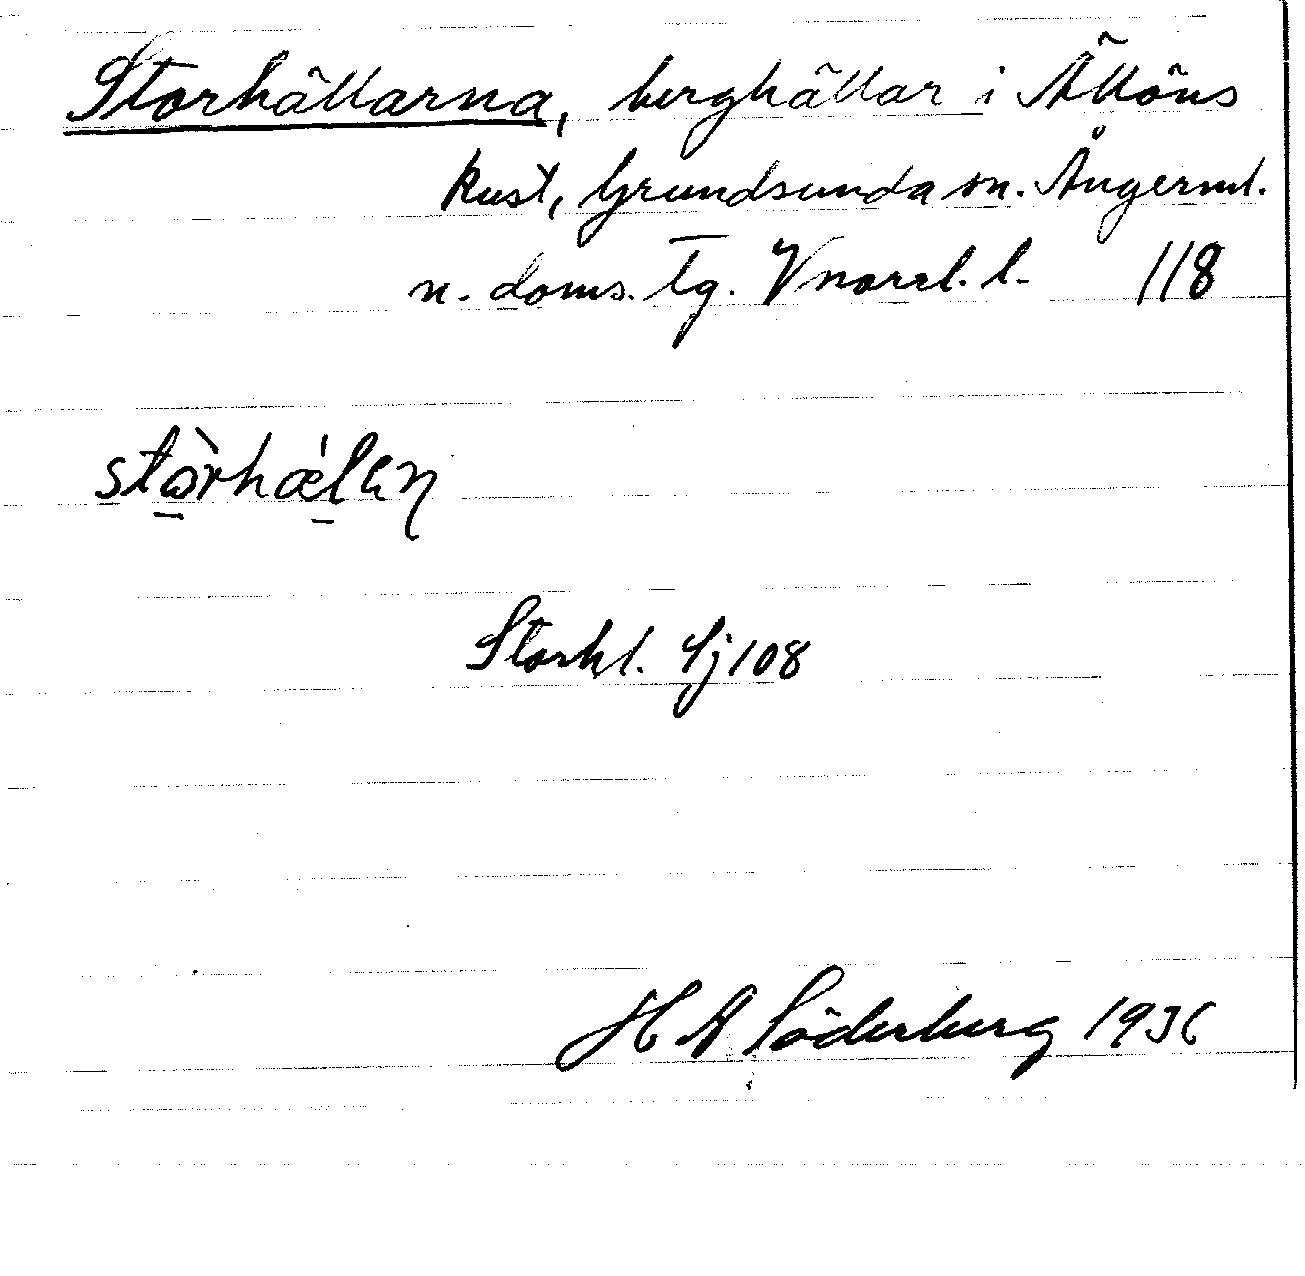 Storhällarna, berghällar i Ällöns
kust, Grundsunda sn. Ångerml.
n. doms. Tg. Vnorrl. l. 118
Storhl. Sj 108
H A Söderberg 1936